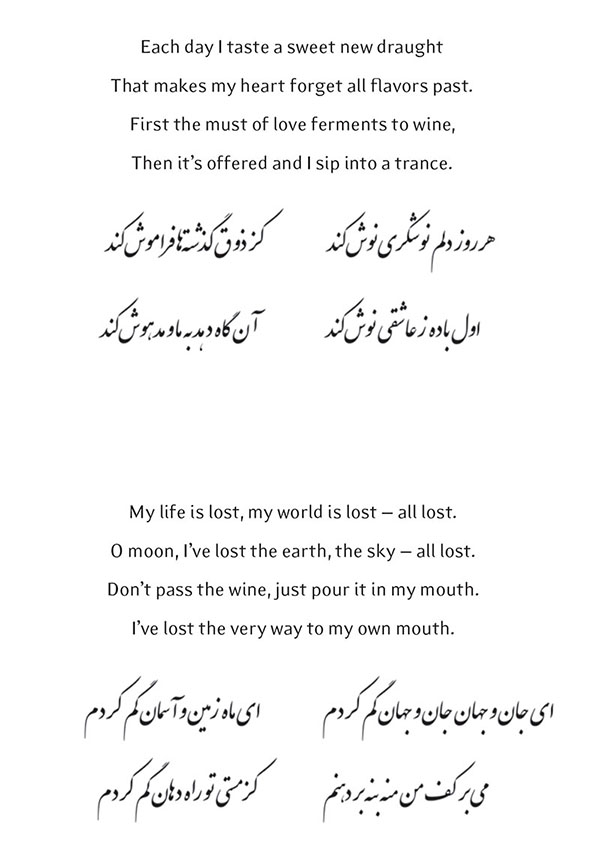 Each day I taste a sweet new draught
That makes my heart forget all flavors past.
First the must of love ferments to wine,
Then it’s offered and I sip into a trance.
هر روز دلم نوشکری نوش کند کز ذوق گذشته‌ها فراموش کند
اول باده ز عاشقی نوش کند آن گاه دهد به ما و مدهوش کند
My life is lost, my world is lost – all lost.
O moon, I’ve lost the earth, the sky – all lost.
Don’t pass the wine, just pour it in my mouth.
I’ve lost the very way to my own mouth.
ای جان و جهان جان و جهان گم کردم ای ماه زمین و آسمان گم کردم
می بر کف من منه بنه بر دهنم کز مستی تو راه دهان گم کردم